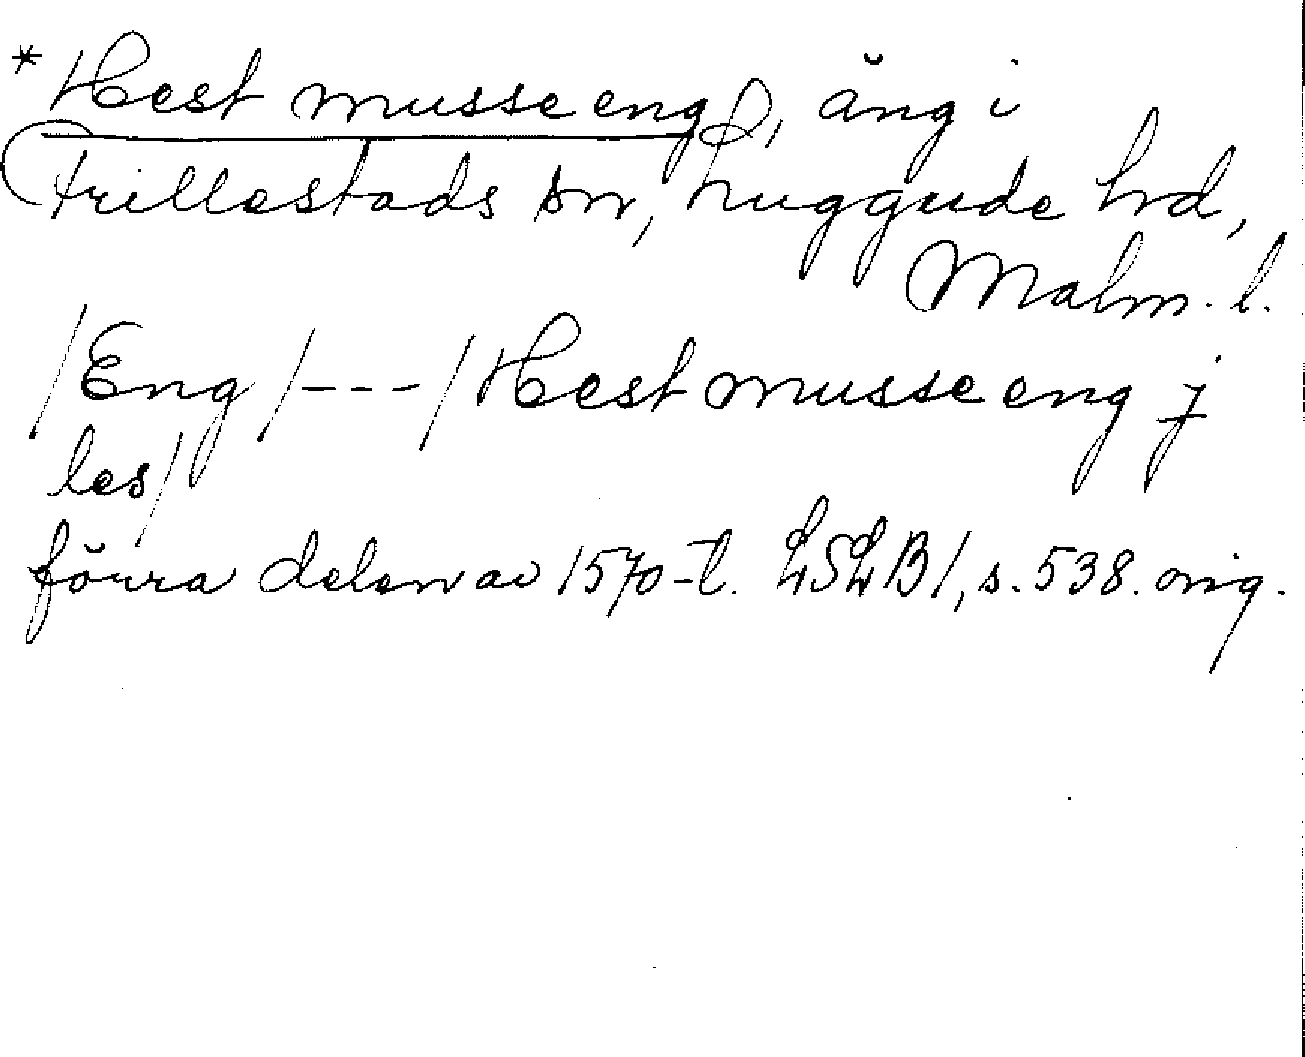 *Hest musse eng, äng i
Frillestads sn, Luggude hd,
Malm. l.
/Eng/---/Hest musse eng j
les/
förra delen av 1570-t. LSLB1, s. 538. orig.